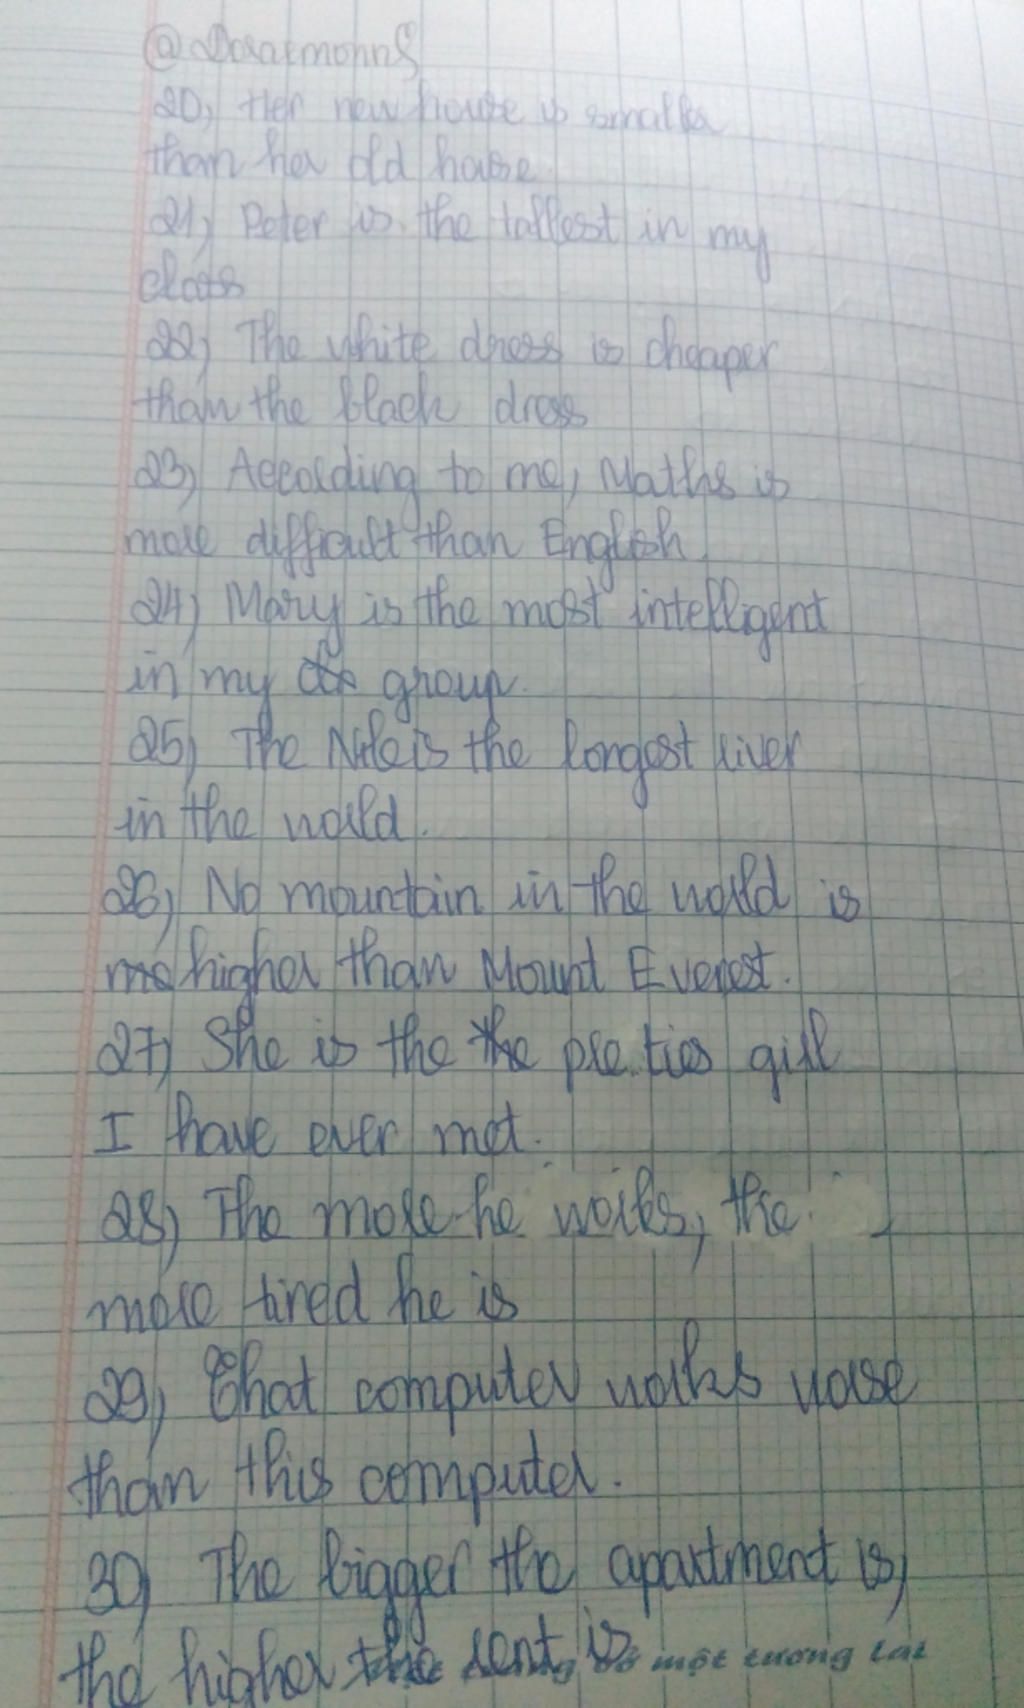 @DoraemonnS
20, Her new house is smaller
than her old house
21, Peter is the tallest in my
class
22, The white dress is cheaper
than the black dress
23, According to me, Maths is
more difficult than English
24, Mary is the most intelligent
in my group.
25, The Nile is the longest river
in the world.
26, No mountain in the world is
higher than Mount Everest.
27, She is the the pretties girl
I have ever met.
28, The more he works, the
more tired he is
29, That computer works worse
than this computer.
30, The bigger the apartment is,
the higher the rent is một tương lai